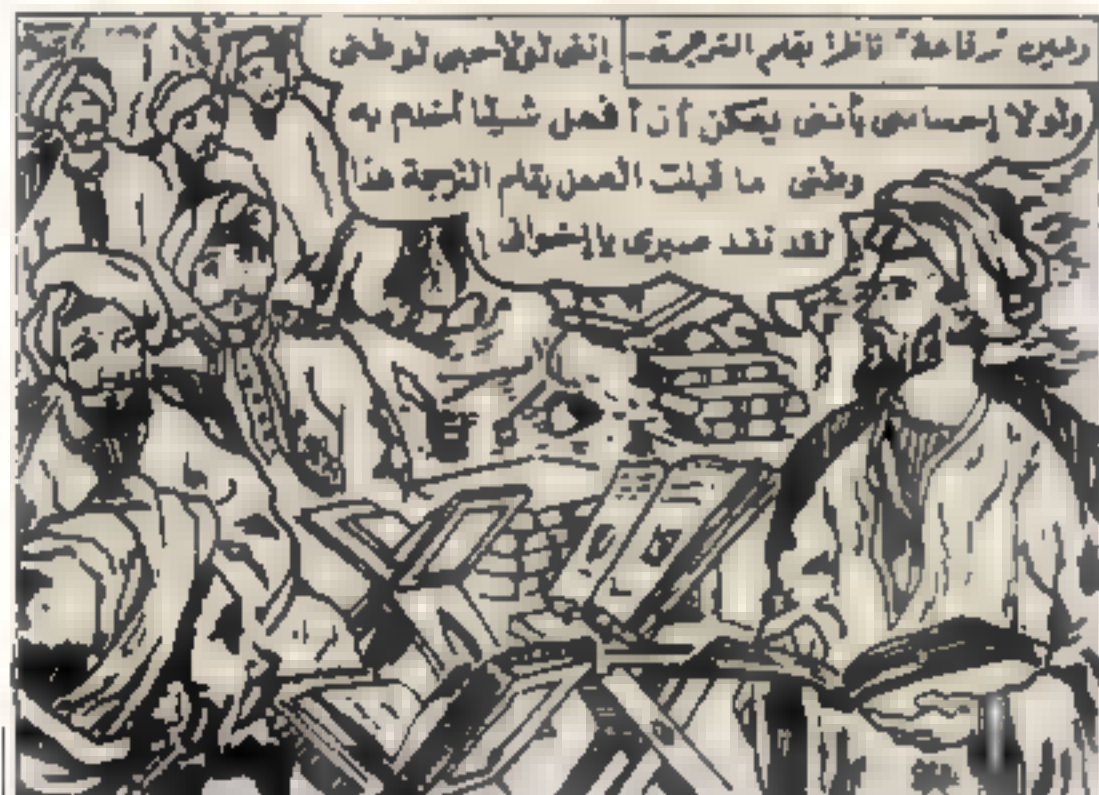 وعين "رفاعة" ناظرا بقلم الترجمة..
إننى لولا حبى لوطنى
ولولا إحساسى بأننى يمكن أن أفعل شيئا أخدم به
وطنى ما قبلت العمل بقلم الترجمة هذا
لقد نفد صبرى يا إخوانى